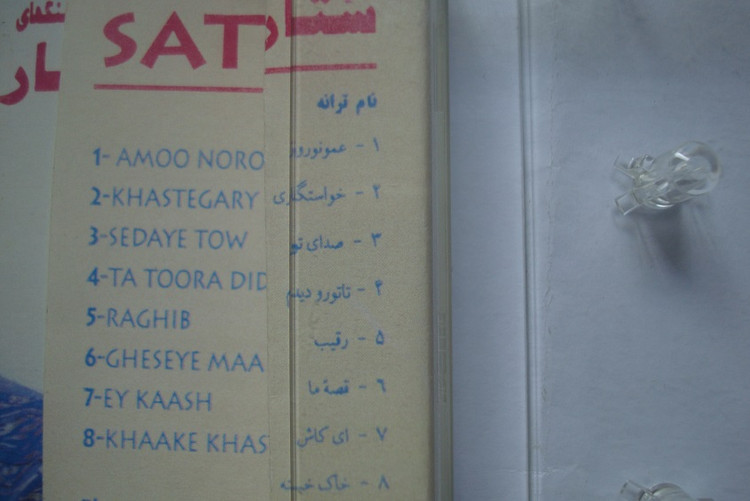 SAT
نام ترانه
1- AMOO NORO
۱ - عمونوروز
2-KHASTEGARY
۲ - خواستگاری
3-SEDAYE TOW
۳ - صدای تو
4-TA TOORA DID
۴ - تاتورو دیدم
5-RAGHIB
۵ - رقیب
6-GHESEYE MAA
۶ - قصهٔ ما
7-EY KAASH
۷ - ای کاش
8-KHAAKE KHAS
۸ - خاک خسته